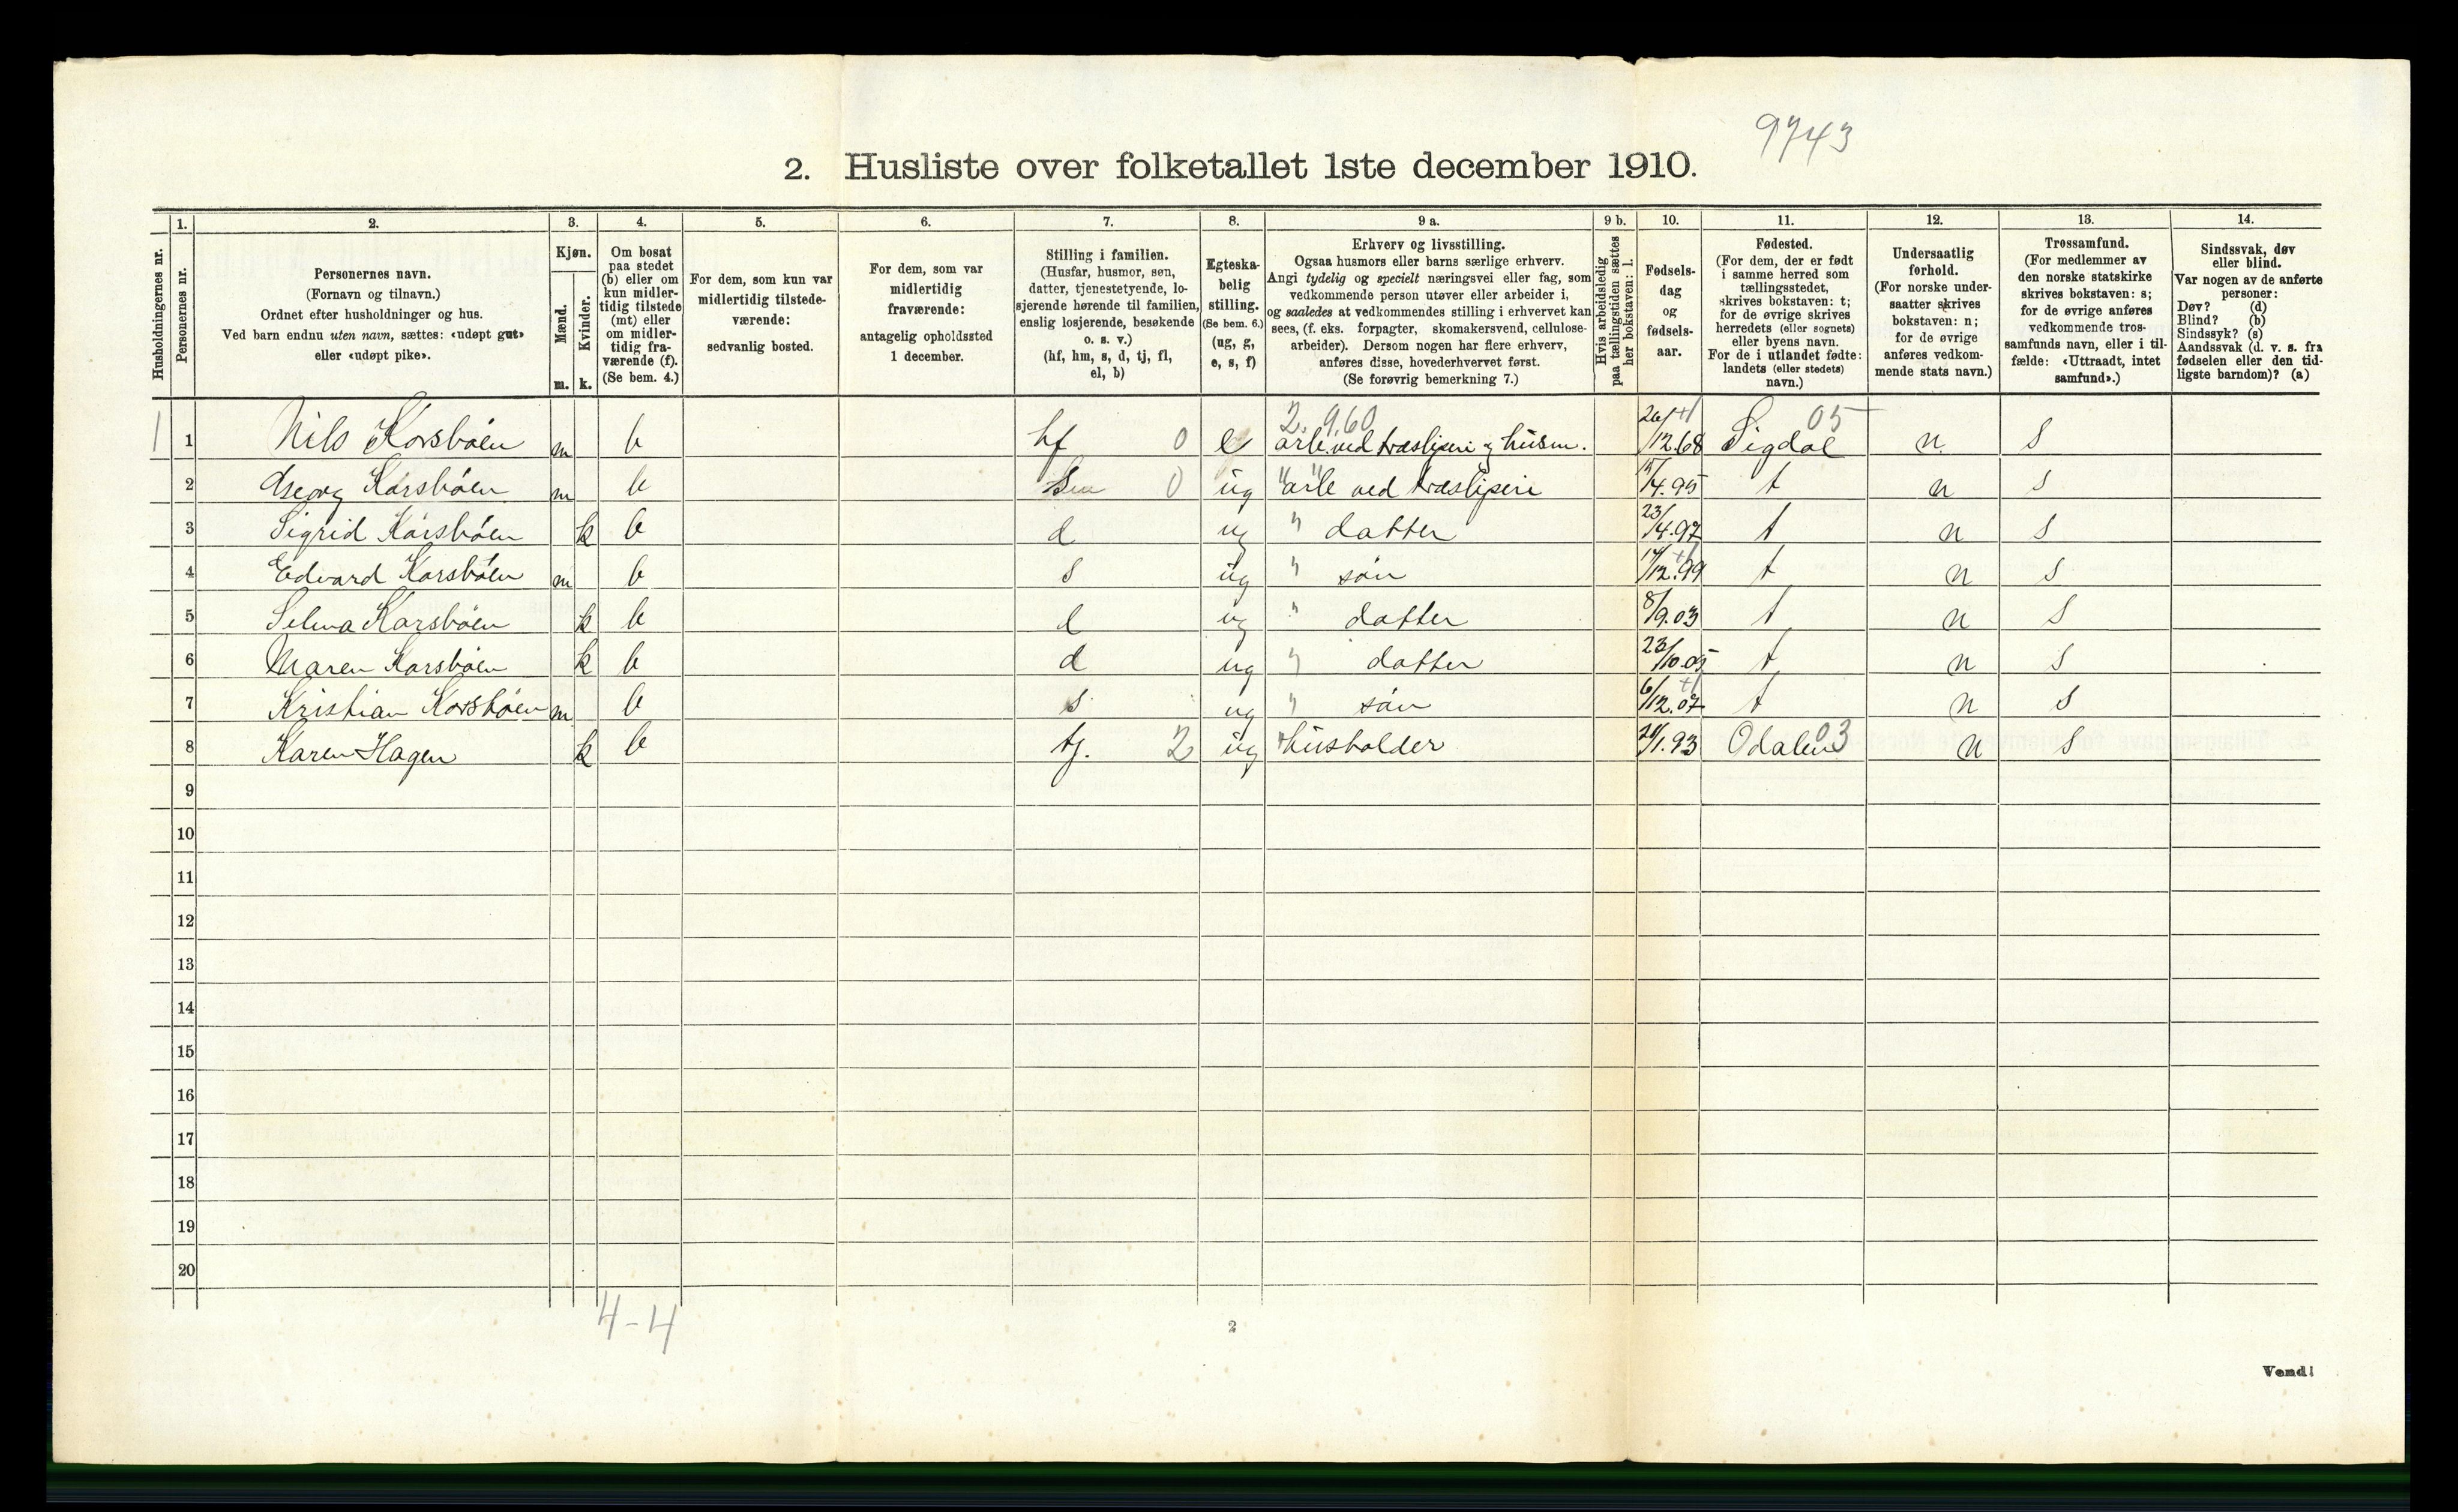 9743
2. Husliste over folketallet 1ste december 1910.
Husholdningernes nr.
1.
Personernes nr.
2.
Personernes navn.
(Fornavn og tilnavn.)
Ordnet efter husholdninger og hus.
Ved barn endnu uten navn, sættes: «udøpt gut»
eller «udøpt pike».
3.
Kjøn.
Mænd.
Kvinder.
m. k.
4.
Om bosat
paa stedet
(b) eller om
kun midler-
tidig tilstede
(mt) eller
om midler-
tidig fra-
værende (f).
(Se bem. 4.)
5.
For dem, som kun var
midlertidig tilstede-
værende:
sedvanlig bosted.
6.
For dem, som var
midlertidig
fraværende:
antagelig opholdssted
1 december.
7.
Stilling i familien.
(Husfar, husmor, søn,
datter, tjenestetyende, lo-
sjerende hørende til familien,
enslig losjerende, besøkende
o. s. v.)
(hf, hm, s, d, tj, fl,
el, b)
8.
Egteska-
belig
stilling.
(Se bem. 6.)
(ug, g,
e, s, f)
9 a.
Erhverv og livsstilling.
Ogsaa husmors eller barns særlige erhverv.
Angi tydelig og specielt næringsvei eller fag, som
vedkommende person utøver eller arbeider i,
og saaledes at vedkommendes stilling i erhvervet kan
sees, (f. eks. forpagter, skomakersvend, cellulose-
arbeider). Dersom nogen har flere erhverv,
anføres disse, hovederhvervet først.
(Se forøvrig bemerkning 7.)
9 b.
Hvis arbeidsledig
paa tællingstiden sættes
her bokstaven: l.
10.
Fødsels-
dag
og
fødsels-
aar.
11.
Fødested.
(For dem, der er født
i samme herred som
tællingsstedet,
skrives bokstaven: t;
for de øvrige skrives
herredets (eller sognets)
eller byens navn.
For de i utlandet fødte:
landets (eller stedets)
navn.)
12.
Undersaatlig
forhold.
(For norske under-
saatter skrives
bokstaven: n;
for de øvrige
anføres vedkom-
mende stats navn.)
13.
Trossamfund.
(For medlemmer av
den norske statskirke
skrives bokstaven: s;
for de øvrige anføres
vedkommende tros-
samfunds navn, eller i til-
fælde: «Uttraadt, intet
samfund».)
14.
Sindssvak, døv
eller blind.
Var nogen av de anførte
personer:
Døv? (d)
Blind? (b)
Sindssyk? (s)
Aandssvak (d. v. s. fra
fødselen eller den tid-
ligste barndom)? (a)
2. 9.60 05
1 1 Nils Korsbøen m b hf 0 e arb. ved træsliperi og husm. 26/12.68 Sigdal n s
2 Georg Korsbøen m b s 0 ug " arb ved træsliperi 15/4.95 t n s
3 Sigrid Korsbøen k b d ug " datter 23/4.97 t n s
4 Edvard Korsbøen m b s ug " søn 14/12.99 t n s
5 Selma Korsbøen k b d ug " datter 8/9.03 t n s
6 Maren Korsbøen k b d ug " datter 23/10.05 t n s
7 Kristian Korsbøen m b s ug " søn 6/12.07 t n s
8 Karen Hagen k b tj. 2 ug husholder /1.93 Odalen 03 n s
9
10
11
12
13
14
15
16
17
18
19
20
4-4
2
Vend!